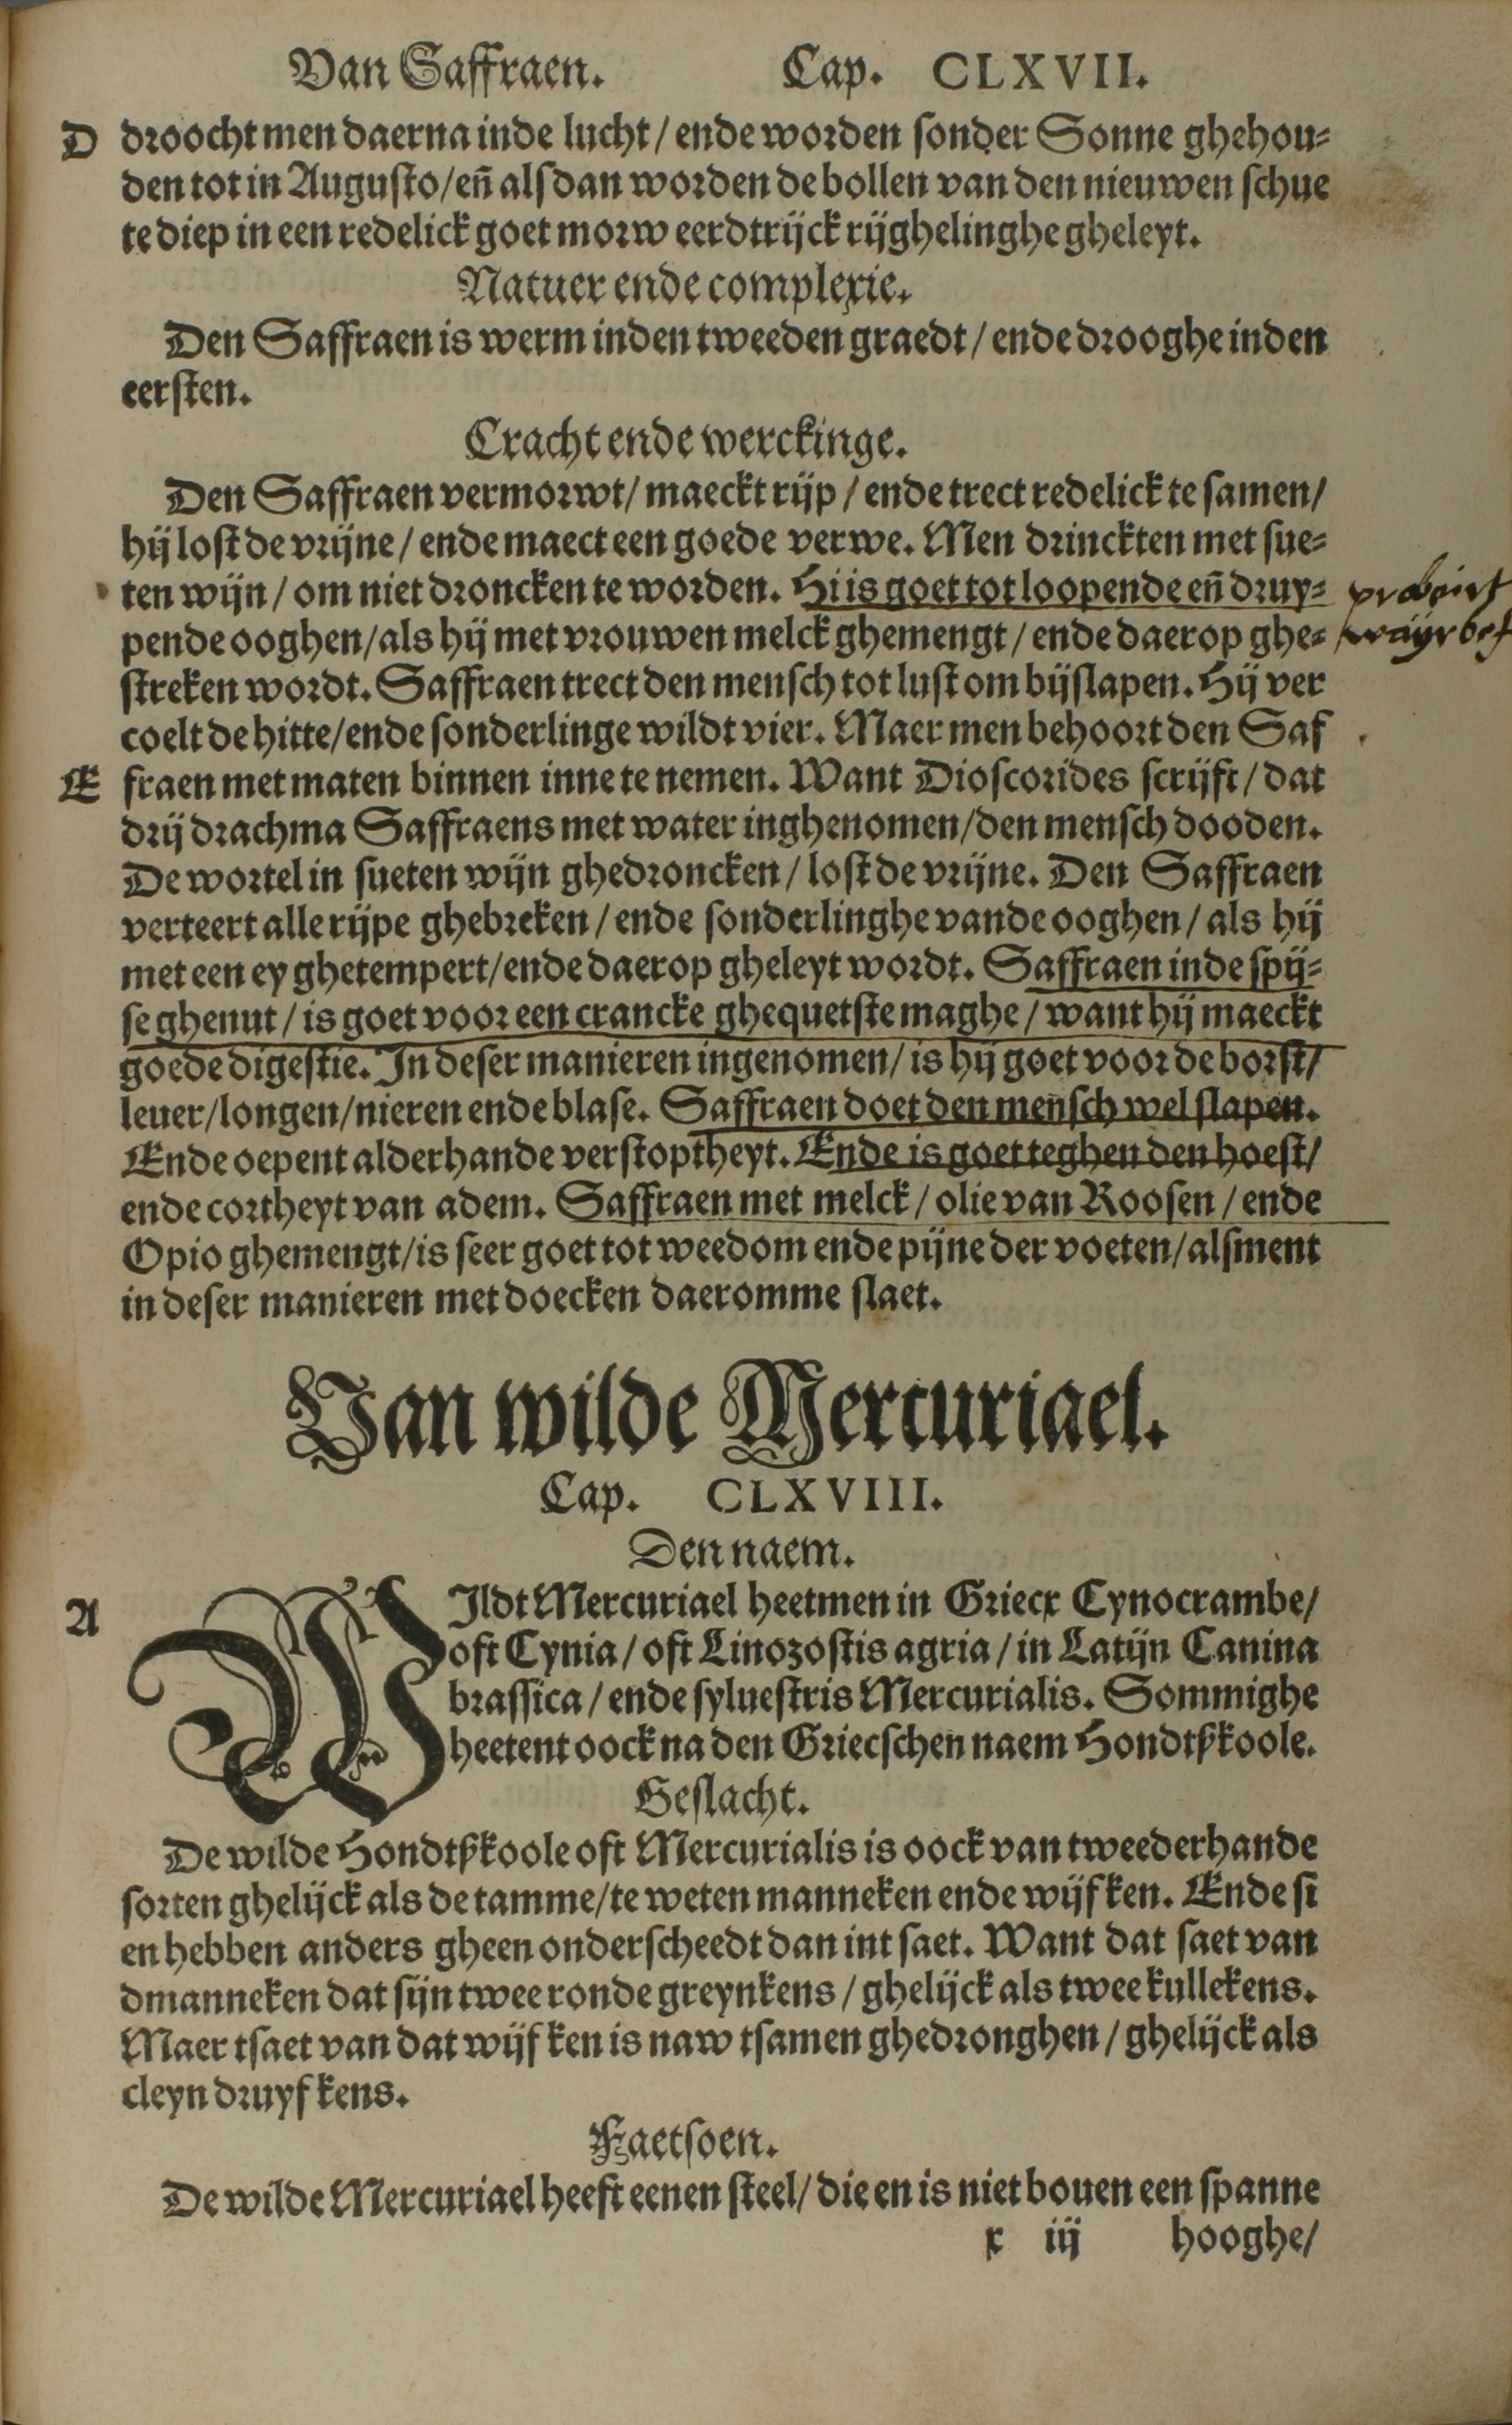 Van Saffraen. Cap. CLXVII.
D droocht men daerna inde lucht/ ende worden sonder Sonne ghehou-
den tot in Augusto/ en̄ alsdan worden de bollen van den nieuwen schue
te diep in een redelick goet morw eerdtrijck rijghelinghe gheleyt.
Natuer ende complexie.
Den Saffraen is werm inden tweeden graedt/ ende drooghe inden
eersten.
Cracht ende werckinge.
Den Saffraen vermorwt/ maeckt rijp/ ende trect redelick te samen/
hij lost de vrijne/ ende maect een goede verwe. Men drinckten met sue-
ten wijn/ om niet droncken te worden. Hi is goet tot loopende en̄ druy-
pende ooghen/ als hij met vrouwen melck ghemengt/ ende daer op ghe-
streken wordt. Saffraen trect den mensch tot lust om bijslapen. Hij ver
coelt de hitte/ ende sonderlinge wildt vier. Maer men behoort den Saf
E fraen met maten binnen inne te nemen. Want Dioscorides scrijft/ dat
drij drachma Saffraens met water inghenomen/ den mensch dooden.
De wortel in sueten wijn ghedroncken/ lost de vrijne. Den Saffraen
verteert alle rijpe ghebreken/ ende sonderlinghe vande ooghen/ als hij
met een ey ghetempert/ ende daer op gheleyt wordt. Saffraen inde spij-
se ghenut/ is goet voor een crancke ghequetste maghe/ want hij maeckt
goede digestie. In deser manieren ingenomen/ is hij goet voor de borst/
leuer/ longen/ nieren ende blase. Saffraen doet den mensch wel slapen.
Ende oepent alderhande verstoptheyt. Ende is goet teghen den hoest/
ende cortheyt van adem. Saffraen met melck/ olie van Roosen/ ende
Opio ghemengt/ is seer goet tot weedom ende pijne der voeten/ alsment
in deser manieren met doecken daeromme slaet.
Van wilde Mercuriael.
Cap. CLXVIII.
Den naem.
A WIldt Mercuriael heetmen in Griecx Cynocrambe/
oft Cynia/ oft Linozostis agria/ in Latijn Canina
brassica/ ende syluestris Mercurialis. Sommighe
heetent oock na den Griecschen naem Hondtßkoole.
Geslacht.
De wilde Hondtßkoole oft Mercurialis is oock van tweederhande
sorten ghelijck als de tamme/ te weten manneken ende wijfken. Ende si
en hebben anders gheen onderscheedt dan int saet. Want dat saet van
dmanneken dat sijn twee ronde greynkens/ ghelijck als twee kullekens.
Maer tsaet van dat wijfken is naw tsamen ghedronghen/ ghelijck als
cleyn druyfkens.
Faetsoen.
De wilde Mercuriael heeft eenen steel/ die en is niet bouen een spanne
x iij hooghe/